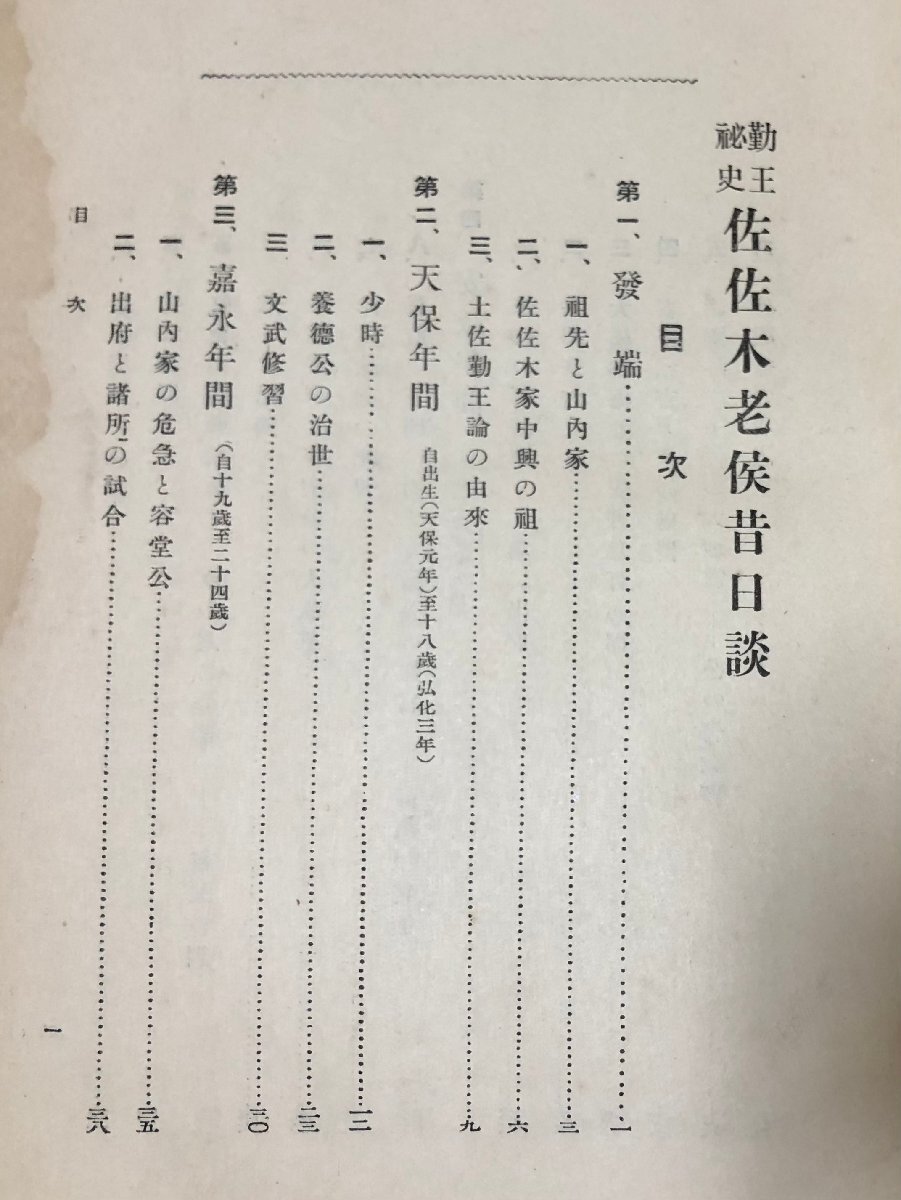 勤王祕史 佐佐木老侯昔日談
目次
第一、發端……一
一、祖先と山內家……三
二、佐佐木家中興の祖……六
三、土佐勤王論の由來……九
第二、天保年間 自出生(天保元年)至十八歲(弘化三年)
一、少時……一二
二、養德公の治世……二三
三 文武修習……三〇
第三、嘉永年間 (自十九歲至二十四歲)
一、山內家の危急と容堂公……三五
二、出府と諸所の試合……三八
目次
一